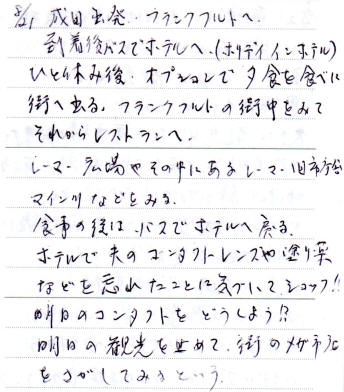 8/21 成田出発・フランクフルトへ.
到着後バスでホテルへ.(ホリデイインホテル)
ひと休み後・オプションで夕食を食べに
街へ出る. フランクフルトの街中をみて
それからレストランへ.
レーマー広場やその中にあるレーマー・旧市庁舎
マイン川などをみる.
食事の後は. バスでホテルへ戻る.
ホテルで夫のコンタクトレンズや塗り薬
などを忘れたことに気づいてショック!!
明日のコンタクトをどうしよう!?
明日の観光を止めて. 街のメガネ店
をさがしてみるという.